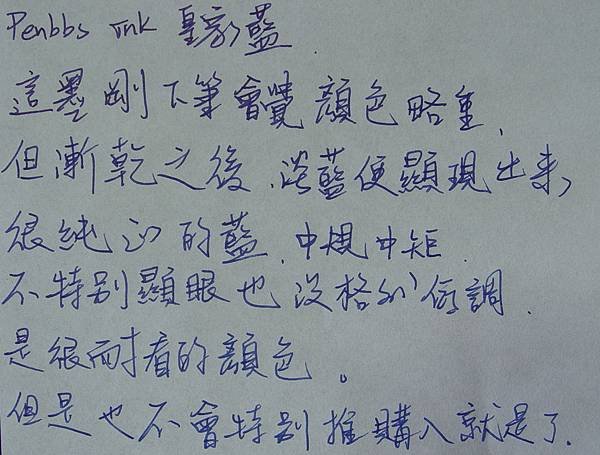 Penbbs ink 皇家藍.
這墨剛下筆會覺顏色略重,
但漸乾之後,淡藍便顯現出來,
很純正的藍,中規中矩.
不特別顯眼也沒格外低調.
是很耐看的顏色。
但是也不會特別推購入就是了.